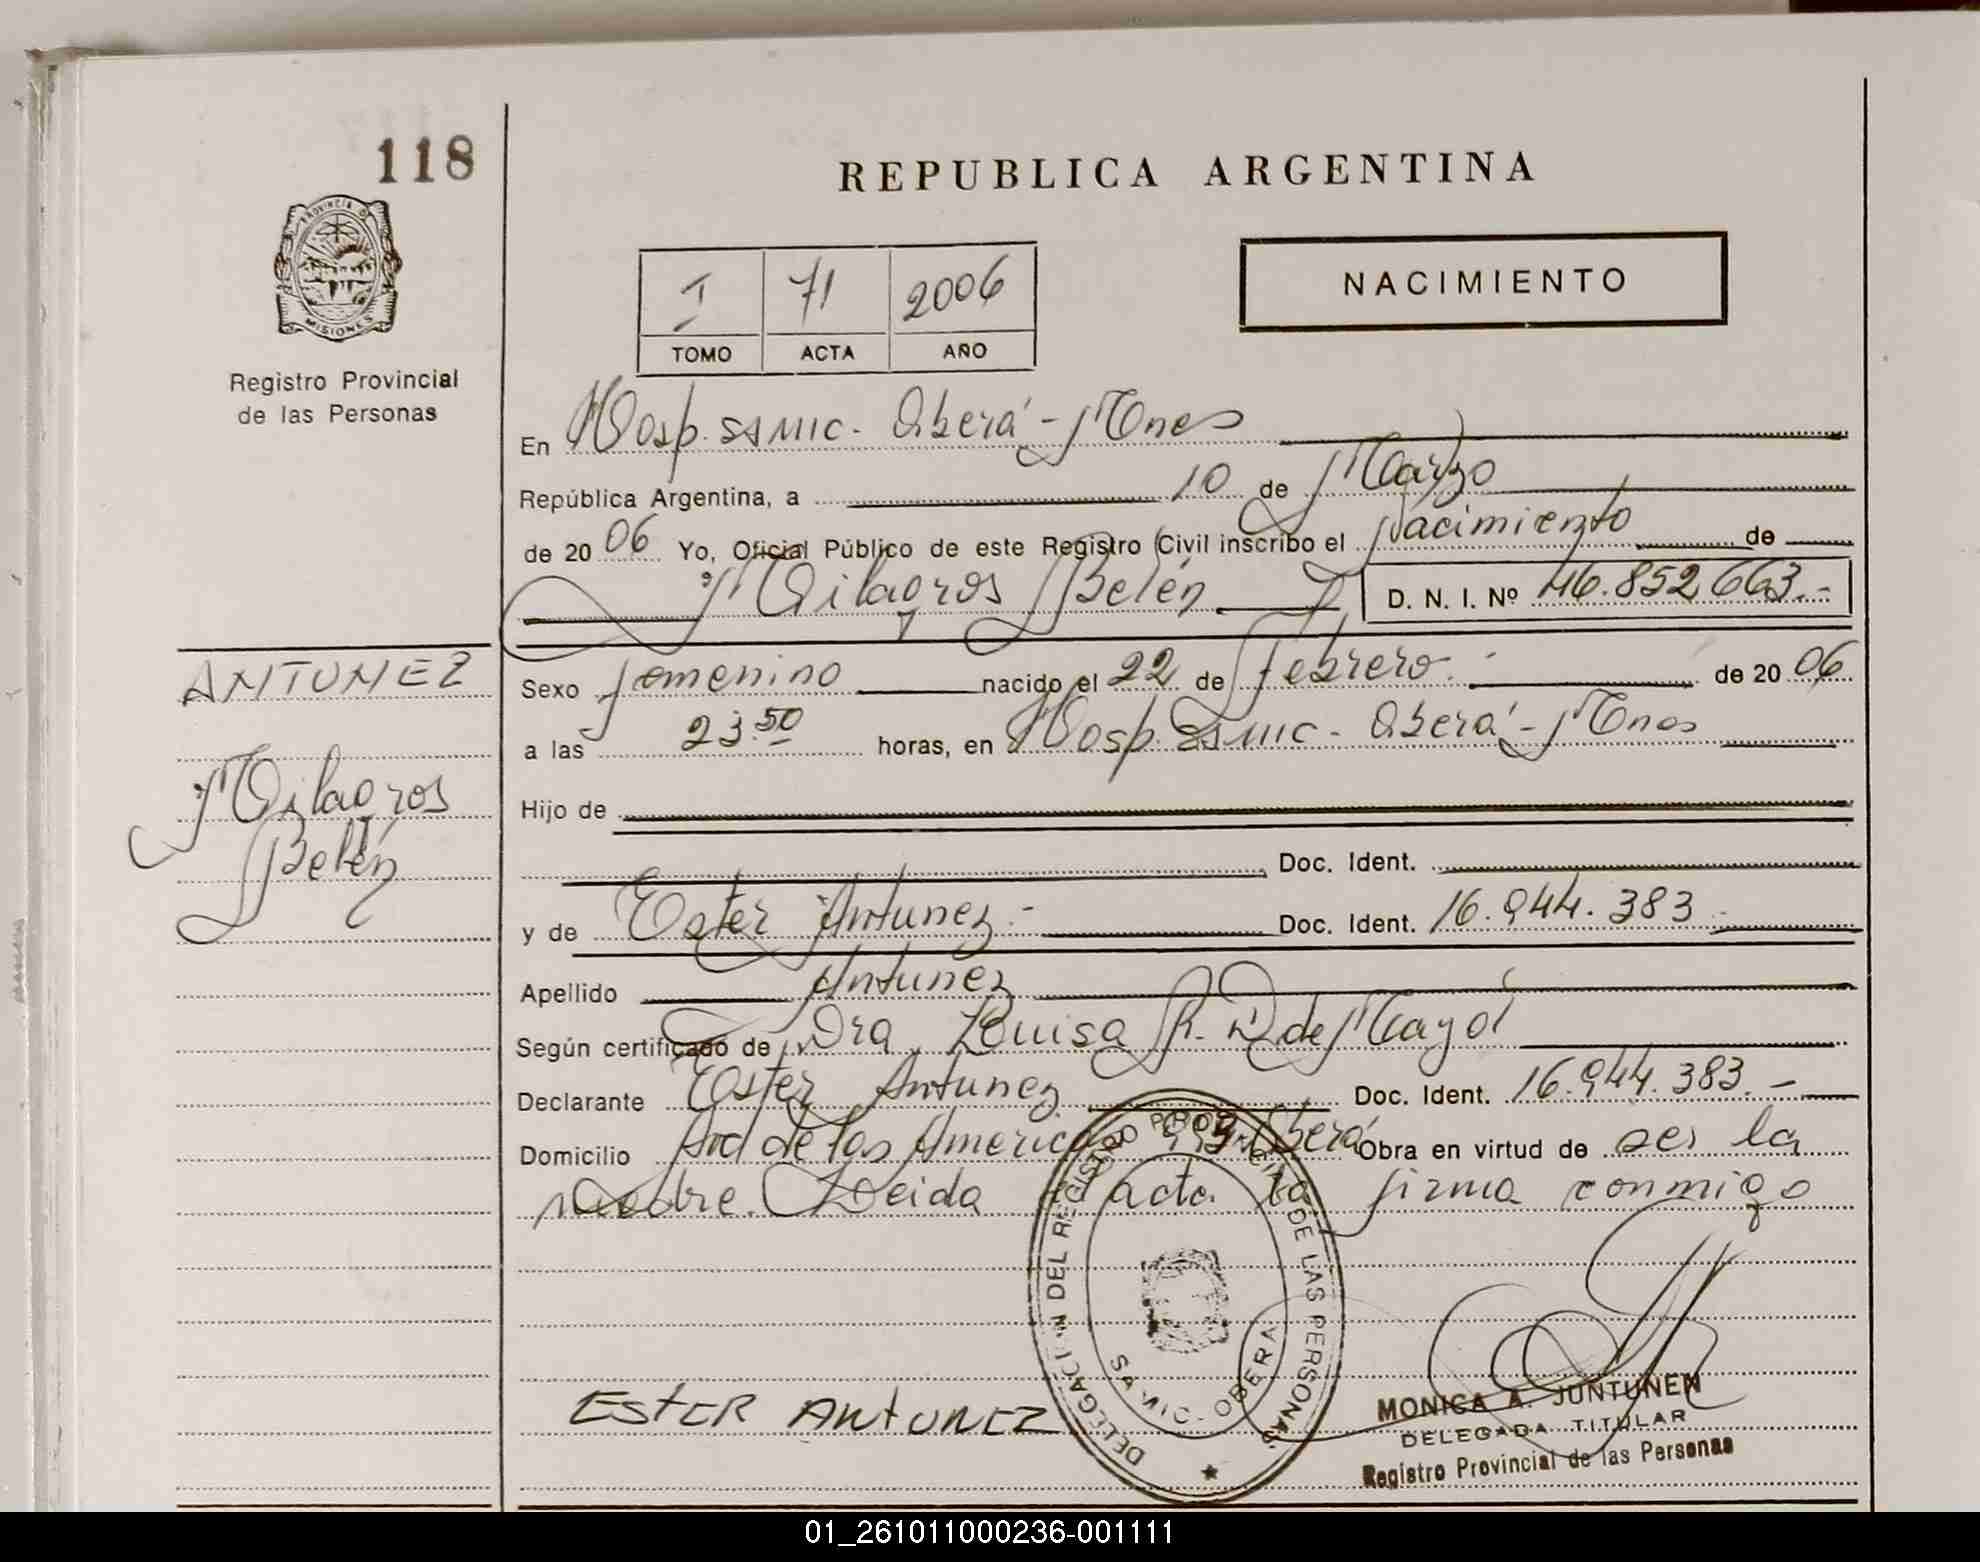 118
REPUBLICA ARGENTINA
PROVINCIA DE
MISIONES
Registro Provincial
de las Personas
I 71 2006
TOMO ACTA AÑO
NACIMIENTO
En Hosp. SAMIC. Oberá - Mnes
República Argentina, a 10 de Marzo
de 20 06 Yo, Oficial Público de este Registro Civil inscribo el Nacimiento de
Milagros Belén D. N. I. Nº 46.852.663.-
ANTUNEZ
Milagros
Belén
Sexo femenino nacido el 22 de Febrero.- de 20 06
a las 23.50 horas, en Hosp. SAMIC - Oberá - Mnes
Hijo de
Doc. Ident.
y de Ester Antunez.- Doc. Ident. 16.944.383.-
Apellido Antunez
Según certificado de Dra Luisa R. D de Mayol
Declarante Ester Antunez Doc. Ident. 16.944.383.-
Domicilio Avd de las Americas Oberá Obra en virtud de ser la
madre. Leida el acta la firma conmigo
DELEGACION DEL REGISTRO PROVINCIAL DE LAS PERSONAS
SAMIC - OBERA
ESTER ANTUNEZ
MONICA A. JUNTUNEN
DELEGADA TITULAR
Registro Provincial de las Personas
01_261011000236-001111